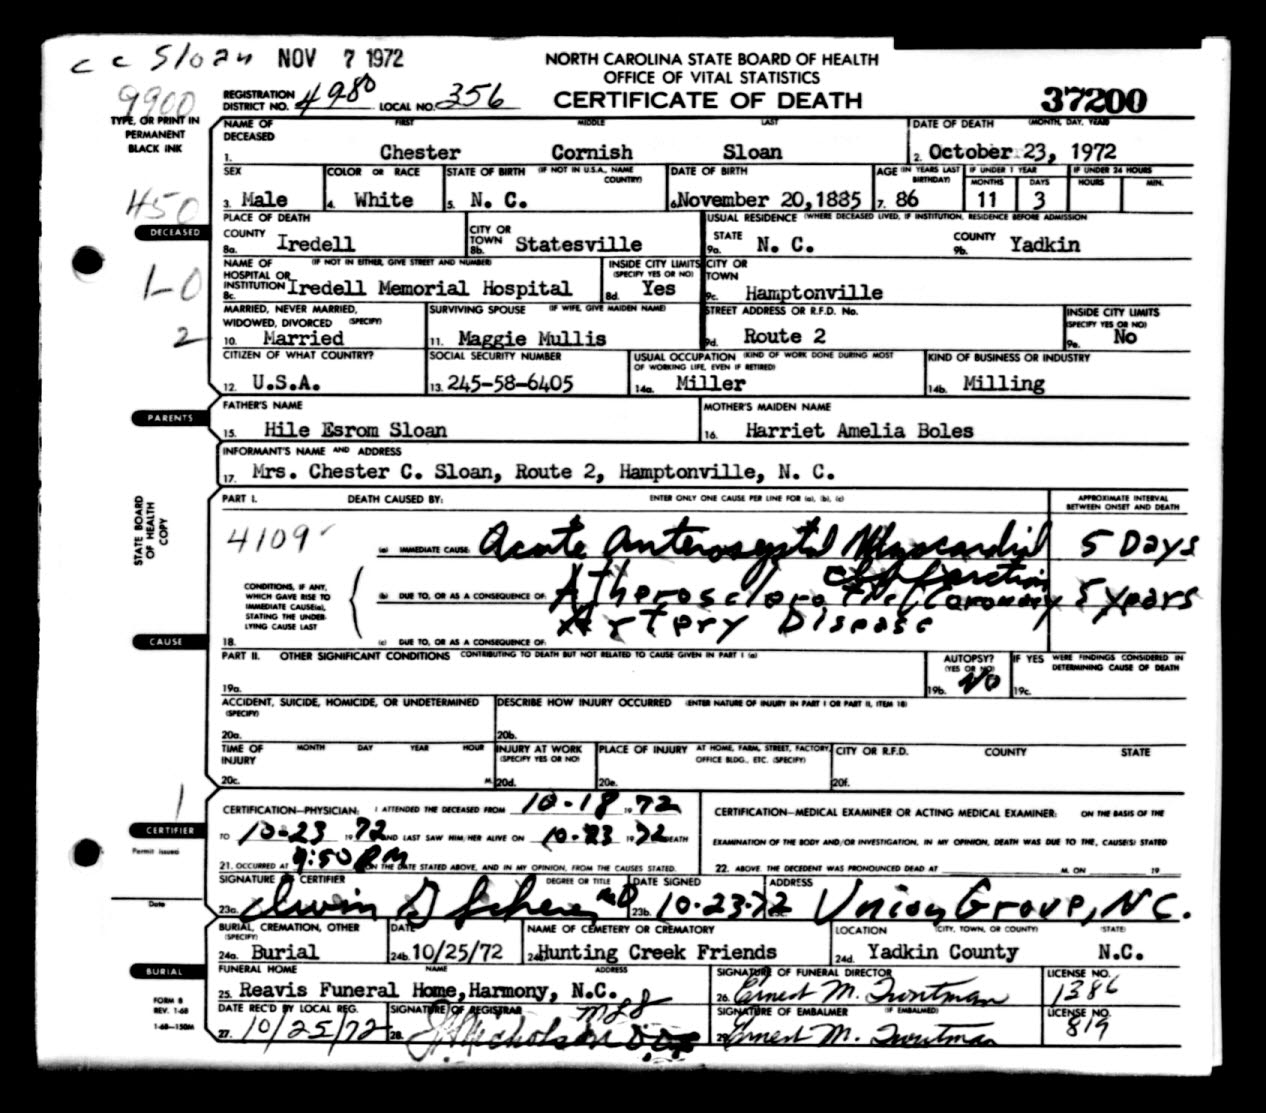 cc Sloan NOV 7 1972
NORTH CAROLINA STATE BOARD OF HEALTH
OFFICE OF VITAL STATISTICS
CERTIFICATE OF DEATH
9900
REGISTRATION DISTRICT NO. 4980 LOCAL NO. 356
37200
TYPE, OR PRINT IN PERMANENT BLACK INK
NAME OF DECEASED FIRST MIDDLE LAST DATE OF DEATH (MONTH, DAY, YEAR)
1. Chester Cornish Sloan 2. October 23, 1972
SEX COLOR OR RACE STATE OF BIRTH (IF NOT IN U.S.A., NAME COUNTRY) DATE OF BIRTH AGE (IN YEARS LAST BIRTHDAY) IF UNDER 1 YEAR MONTHS DAYS IF UNDER 24 HOURS HOURS MIN.
3. Male 4. White 5. N. C. 6. November 20,1885 7. 86 11 3
450
DECEASED
PLACE OF DEATH USUAL RESIDENCE (WHERE DECEASED LIVED, IF INSTITUTION, RESIDENCE BEFORE ADMISSION
COUNTY CITY OR TOWN STATE COUNTY
8a. Iredell 8b. Statesville 9a. N. C. 9b. Yadkin
1-0
NAME OF HOSPITAL OR INSTITUTION (IF NOT IN EITHER, GIVE STREET AND NUMBER) INSIDE CITY LIMITS (SPECIFY YES OR NO) CITY OR TOWN
8c. Iredell Memorial Hospital 8d. Yes 9c. Hamptonville
2
MARRIED, NEVER MARRIED, WIDOWED, DIVORCED (SPECIFY) SURVIVING SPOUSE (IF WIFE, GIVE MAIDEN NAME) STREET ADDRESS OR R.F.D. No. INSIDE CITY LIMITS (SPECIFY YES OR NO)
10. Married 11. Maggie Mullis 9d. Route 2 9e. No
CITIZEN OF WHAT COUNTRY? SOCIAL SECURITY NUMBER USUAL OCCUPATION (KIND OF WORK DONE DURING MOST OF WORKING LIFE, EVEN IF RETIRED) KIND OF BUSINESS OR INDUSTRY
12. U.S.A. 13. 245-58-6405 14a. Miller 14b. Milling
PARENTS
FATHER'S NAME MOTHER'S MAIDEN NAME
15. Hile Esrom Sloan 16. Harriet Amelia Boles
INFORMANT'S NAME AND ADDRESS
17. Mrs. Chester C. Sloan, Route 2, Hamptonville, N. C.
STATE BOARD OF HEALTH COPY
PART I. DEATH CAUSED BY: ENTER ONLY ONE CAUSE PER LINE FOR (a), (b), (c) APPROXIMATE INTERVAL BETWEEN ONSET AND DEATH
4109
(a) IMMEDIATE CAUSE: Acute Anteroseptal Myocardial Infarction 5 Days
CONDITIONS, IF ANY, WHICH GAVE RISE TO IMMEDIATE CAUSE(a), STATING THE UNDERLYING CAUSE LAST
(b) DUE TO, OR AS A CONSEQUENCE OF: Atherosclerotic Coronary 5 years
Artery Disease
CAUSE
18. (c) DUE TO, OR AS A CONSEQUENCE OF:
PART II. OTHER SIGNIFICANT CONDITIONS CONTRIBUTING TO DEATH BUT NOT RELATED TO CAUSE GIVEN IN PART I (a) AUTOPSY? (YES OR NO) IF YES WERE FINDINGS CONSIDERED IN DETERMINING CAUSE OF DEATH
19a. 19b. No 19c.
ACCIDENT, SUICIDE, HOMICIDE, OR UNDETERMINED (SPECIFY) DESCRIBE HOW INJURY OCCURRED (ENTER NATURE OF INJURY IN PART I OR PART II, ITEM 18)
20a. 20b.
TIME OF INJURY MONTH DAY YEAR HOUR INJURY AT WORK (SPECIFY YES OR NO) PLACE OF INJURY AT HOME, FARM, STREET, FACTORY, OFFICE BLDG., ETC. (SPECIFY) CITY OR R.F.D. COUNTY STATE
20c. M. 20d. 20e. 20f.
1
CERTIFIER
CERTIFICATION—PHYSICIAN: I ATTENDED THE DECEASED FROM 10-18 1972 CERTIFICATION—MEDICAL EXAMINER OR ACTING MEDICAL EXAMINER: ON THE BASIS OF THE
TO 10-23 1972 AND LAST SAW HIM/HER ALIVE ON 10-23 1972 DEATH EXAMINATION OF THE BODY AND/OR INVESTIGATION, IN MY OPINION, DEATH WAS DUE TO THE, CAUSE(S) STATED
Permit issued
21. OCCURRED AT 9:50 PM ON THE DATE STATED ABOVE, AND IN MY OPINION, FROM THE CAUSES STATED. 22. ABOVE. THE DECEDENT WAS PRONOUNCED DEAD AT M. ON 19
SIGNATURE OF CERTIFIER DEGREE OR TITLE DATE SIGNED ADDRESS
Date
23a. Irwin G Scherer MD 23b. 10-23-72 23c. Union Grove, N.C.
BURIAL, CREMATION, OTHER (SPECIFY) DATE NAME OF CEMETERY OR CREMATORY LOCATION (CITY, TOWN, OR COUNTY) (STATE)
24a. Burial 24b. 10/25/72 24c. Hunting Creek Friends 24d. Yadkin County N.C.
BURIAL
FUNERAL HOME NAME ADDRESS SIGNATURE OF FUNERAL DIRECTOR LICENSE NO.
25. Reavis Funeral Home, Harmony, N.C. 26. Ernest M. Troutman 1386
FORM 8
REV. 1-68
1-68-150M
DATE REC'D BY LOCAL REG. SIGNATURE OF REGISTRAR SIGNATURE OF EMBALMER (IF EMBALMED) LICENSE NO.
27. 10/25/72 28. Nicholson 29. Ernest M. Troutman 819